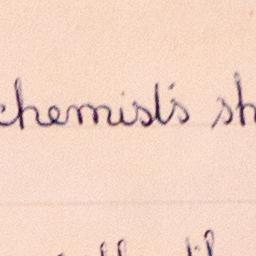 chemist's sh